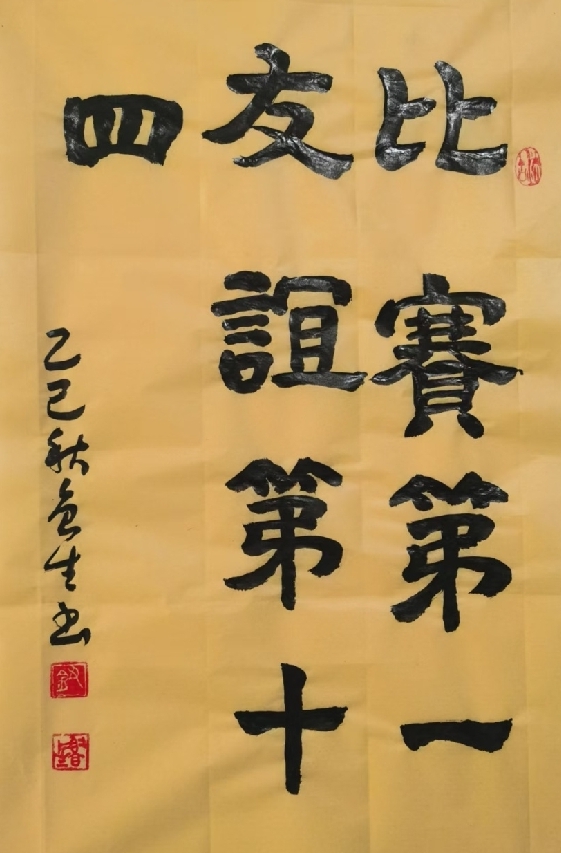 比賽第一
友誼第十
四
乙巳秋金生書